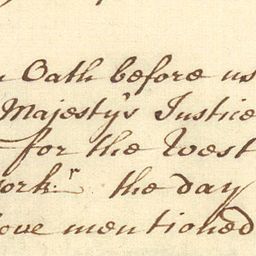 Oath before us
Majesty's Justice
for the West
York.r the day
ove mentioned